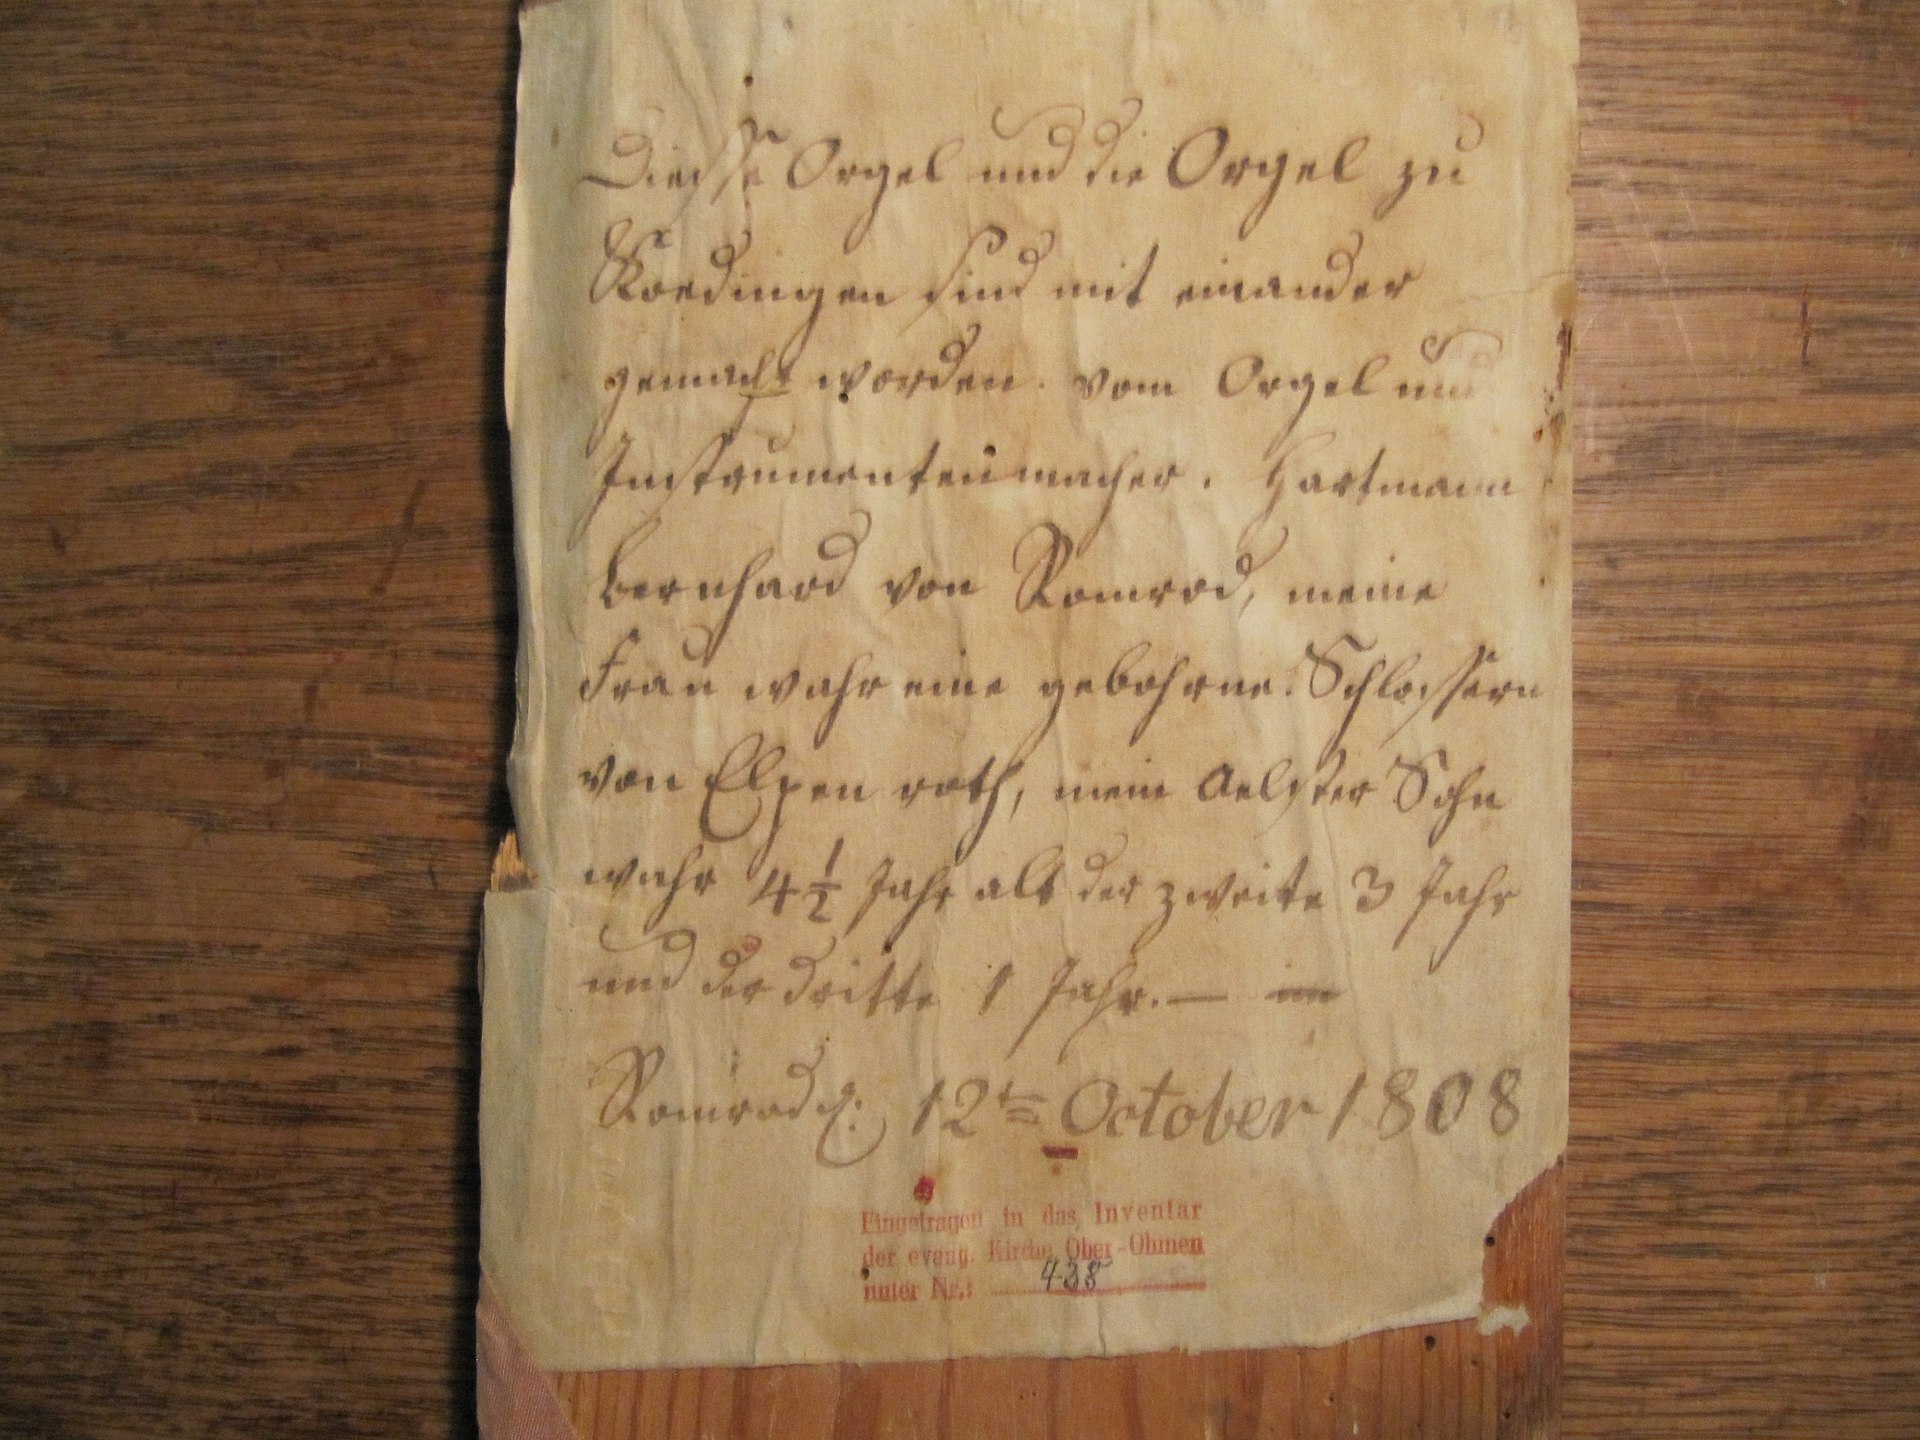 Diesse Orgel und die Orgel zu
Roedingen sind mit einander
gemacht worden. vom Orgel und
Instrumentenmacher. Hartmann
Bernhard von Romrod, meine
Frau wahr eine gebohrne. Schlossern
von Elpen roth, mein aelster Sohn
wahr 4 1/2 Jahr alt der zweite 3 Jahr
und der dritte 1 Jahr. —
Romrod d: 12t October 1808
Eingetragen in das Inventar
der evang. Kirche Ober-Ohmen
unter Nr.: 438